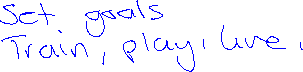 Set goals
Train, play, live.